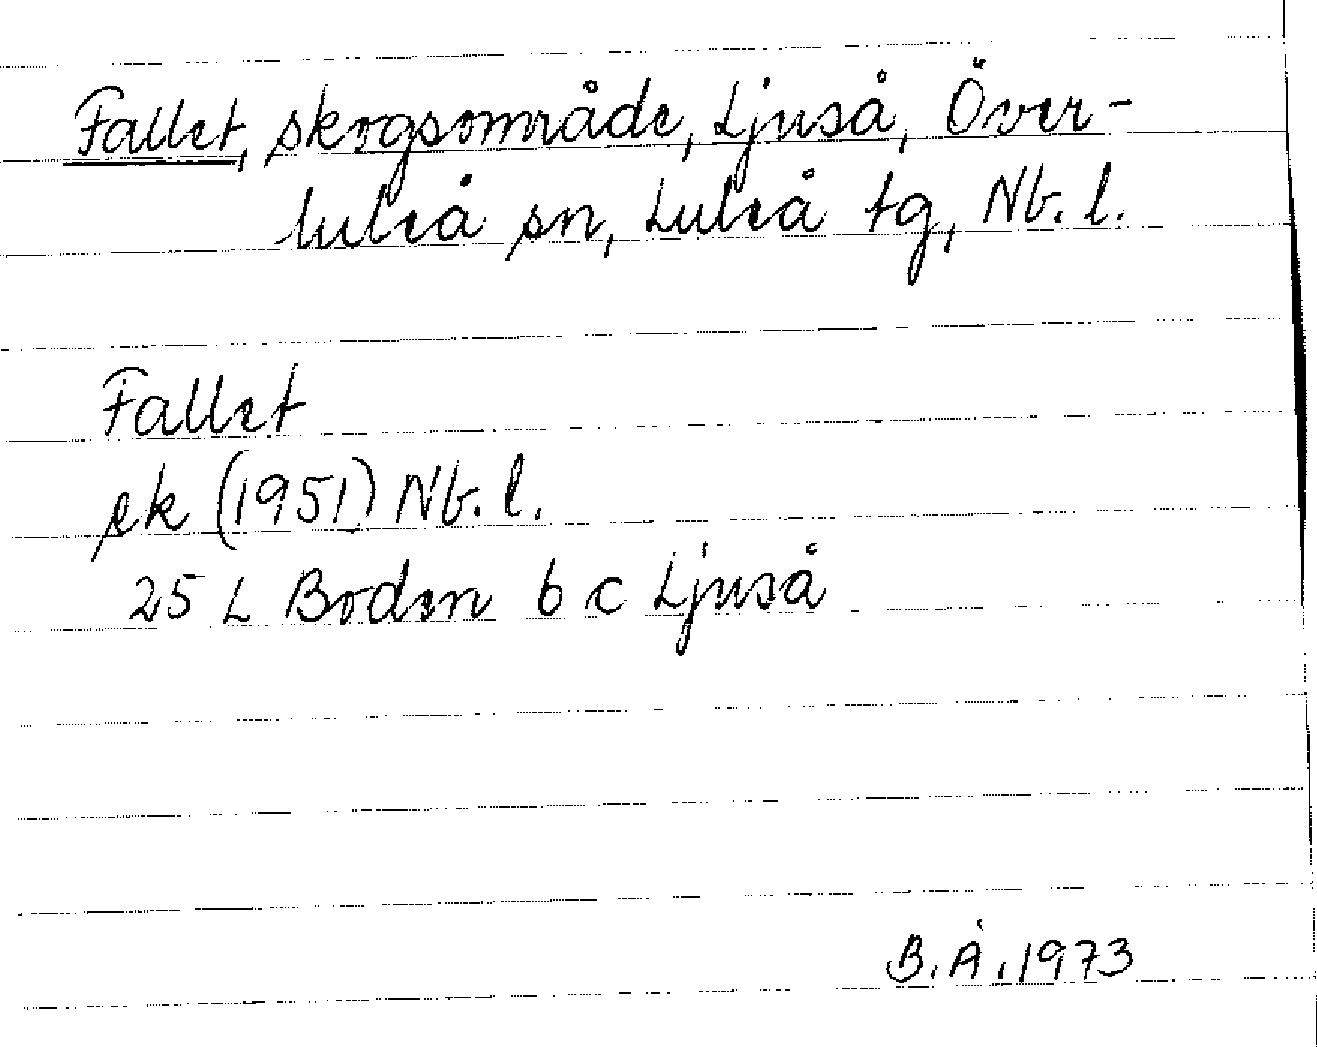 Fallet, skogsområde, Ljuså, Över-
luleå sn, Luleå tg, Nb. l.
Fallet
ek (1951) Nb. l.
25 L Boden b c Ljuså
B. Å. 1973